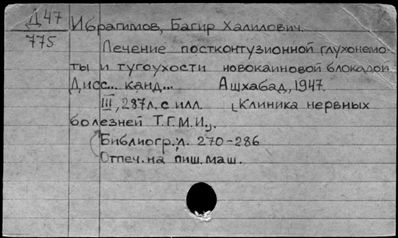 Д 47
775
Ибрагимов, Багир Халилович.
Лечение постконтузионной глухонемо-
ты и тугоухости новокаиновой блокадой.
Дисс... канд... Ашхабад, 1947.
III, 287л. с илл. (Клиника нервных
болезней Т.Г.М.И.).
Библиогр.: л. 270-286
Отпеч. на пиш. маш.